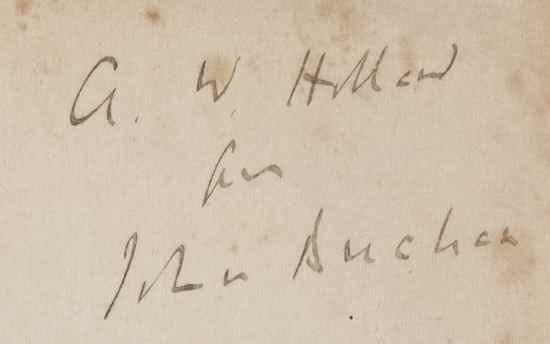 A. W. Holland
from
John Buchan